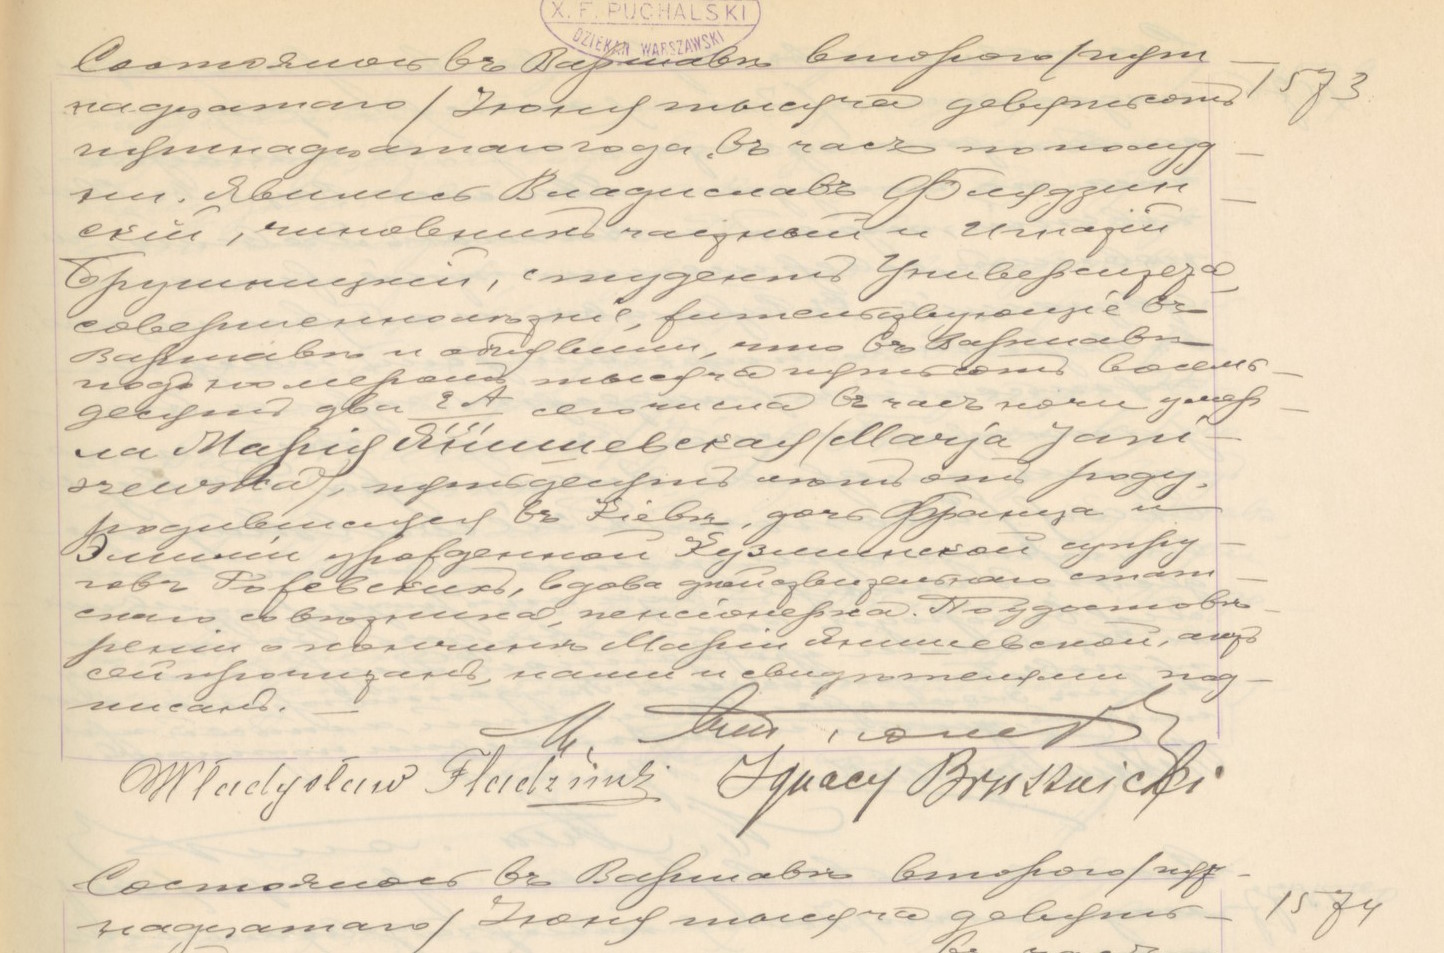 X. F. PUCHALSKI
DZIEKAN WARSZAWSKI
Состоялось въ Варшавѣ второго /пят
1573
надцатаго/ Іюня тысяча девятьсотъ
пятнадцатаго года, въ часъ пополуд
ни. Явились Владиславъ Флядзин
скій, чиновникъ частный и Игнатій
Брушницкій, студентъ Университета,
совершеннолѣтніе, жительствующіе въ
Варшавѣ и объявили, что въ Варшавѣ
подъ номеромъ тысяча пятьсотъ восемь
десятъ два 2 А сего числа въ часъ ночи умер
ла Марія Янишевская /Marja Jani
szewska/, пятьдесятъ лѣтъ отъ роду,
родившаяся въ Кіевѣ, дочь Франца и
Эмиліи урожденной Кузминской супру
говъ вдова дѣйствительнаго стат
скаго совѣтника, пенсіонерка. По удостовѣ
реніи о кончинѣ Маріи Янишевской, актъ
сей прочитанъ, нами и свидѣтелями под
писанъ.
Władysław Fladziński Ignacy Brusznicki
Состоялось въ Варшавѣ второго /пят
1574
надцатаго/ Іюня тысяча девять
въ часъ